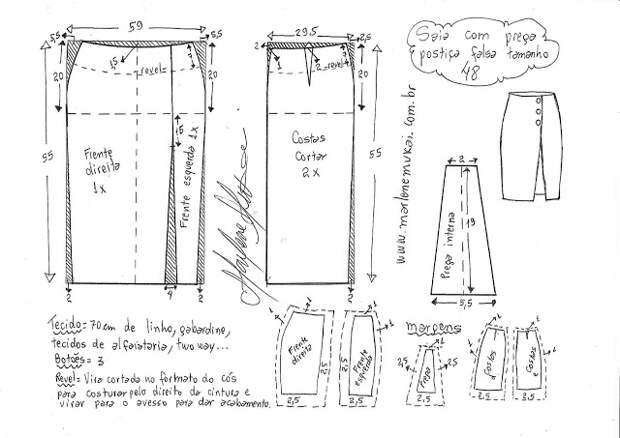 59
2,5
2,5
29,5
2,5
Saia com prega
postiça falsa tamanho
48
20
1,5
revel
20
2
1
2
revel
20
55
55
55
15
Frente
direita
1x
Frente esquerda 1x
Costas
Cortar
2x
2
4
2
2
www.marlenemukai.com.br
2
19
Prega interna
5,5
Tecido= 70cm de linho, gabardine,
tecidos de alfaiataria, two way...
Botões= 3
Revel= Vira cortada no formato do cós
para costurar pelo direito da cintura e
virar para o avesso para dar acabamento.
Frente
direita
2,5
3,5
Frente
esquerda
2,5
3,5
margens
Prega
2,5
2,5
Costas
d
2,5
Costas
e
3,5